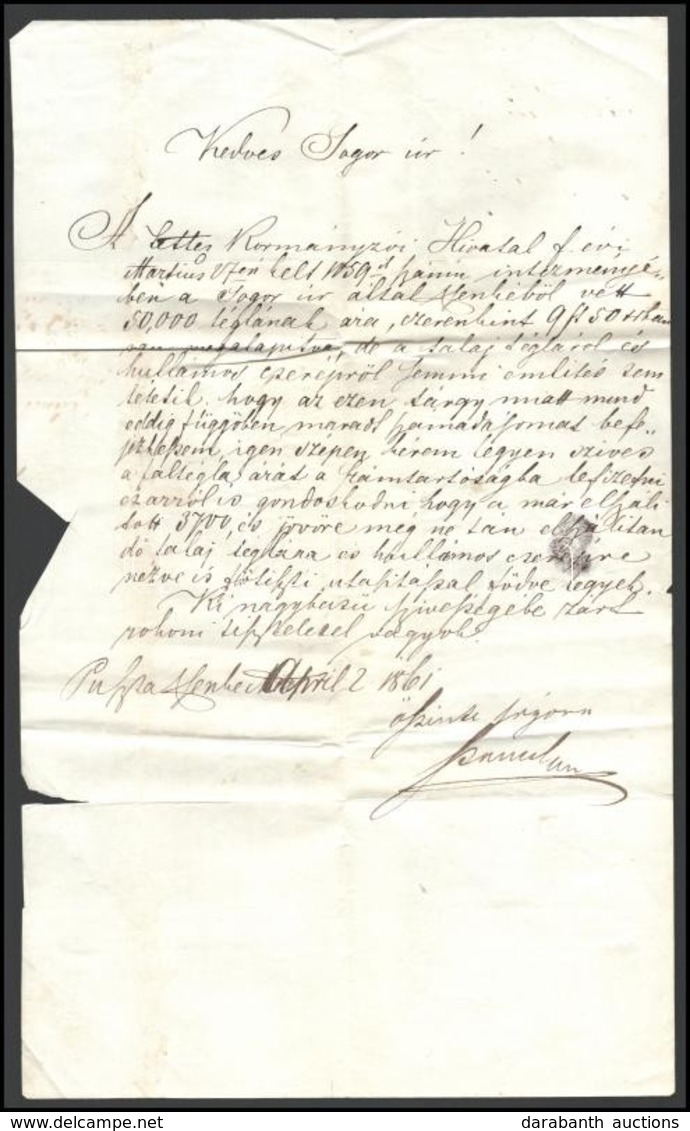 Kedves Sogor úr!
A Kormányzói Hivatal f. évi
Martius helt 1059 számu intézményé-
ben a Sogor úr által Henkéböl vett
50,000 téglának ára, ezerenkint 9 ft 50
van megalapitva, de a talaj tégláról és
hullámos cserépröl semmi emlités sem
tétetik, hogy az ezen tárgy miatt mind
eddig függöben maradt számadásomat befe„
jezhessem, igen szépen kérem légyen szives
a faltégla árát a számtartóságba lefizetni
és arról is gondoskodni, hogy a már elszáli
tott 3700, és jövöre még ne tán elszálitan
dó talaj téglára és hullámos cserépre
nézve is fötiszti utasitással födve legyek.
Ki nagybecsü szivességébe zárt
rokoni tisztelettel vagyok.
Puszta April 2 1861
öszinte sógora
darabanth auctions